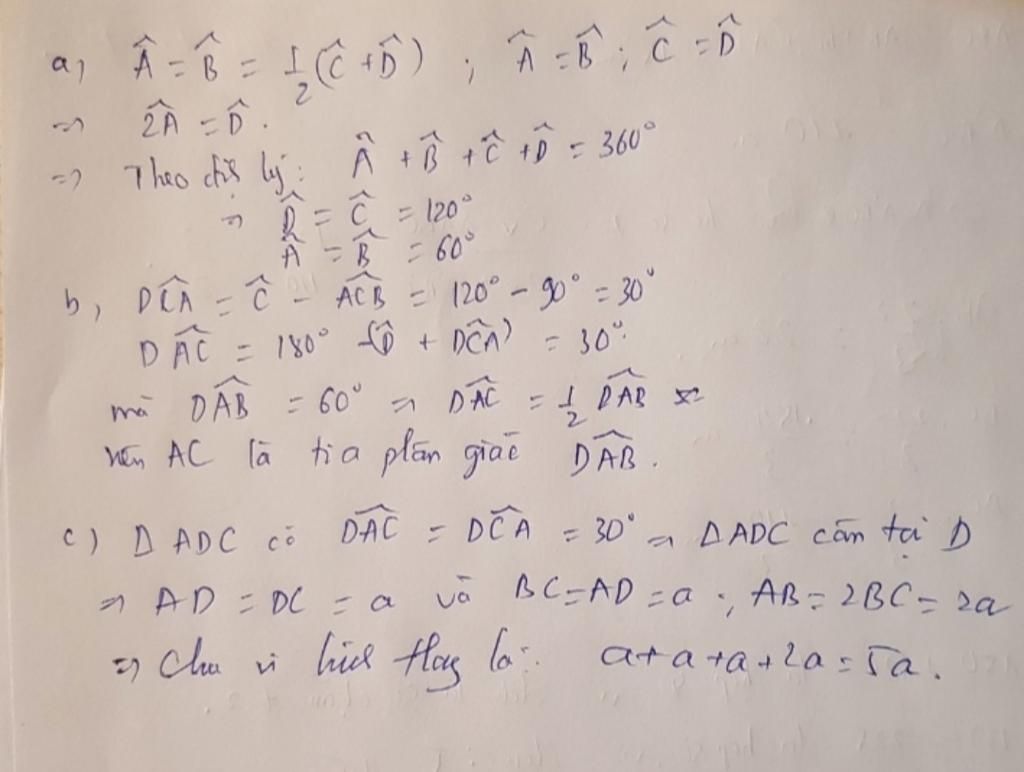 a, Â = B̂ = 1/2 (Ĉ + D̂) ; Â = B̂ ; Ĉ = D̂
=> 2Â = D̂.
=> Theo định lý: Â + B̂ + Ĉ + D̂ = 360°
=> D̂ = Ĉ = 120°
Â = B̂ = 60°
b, DĈA = Ĉ - AĈB = 120° - 90° = 30°
DÂC = 180° - (D̂ + DĈA) = 30°.
mà DÂB = 60° => DÂC = 1/2 DÂB
nên AC là tia phân giác DÂB.
c) Δ ADC có DÂC = DĈA = 30° => ΔADC cân tại D
=> AD = DC = a và BC = AD = a ; AB = 2BC = 2a
=> Chu vi hình thang là: a + a + a + 2a = 5a.